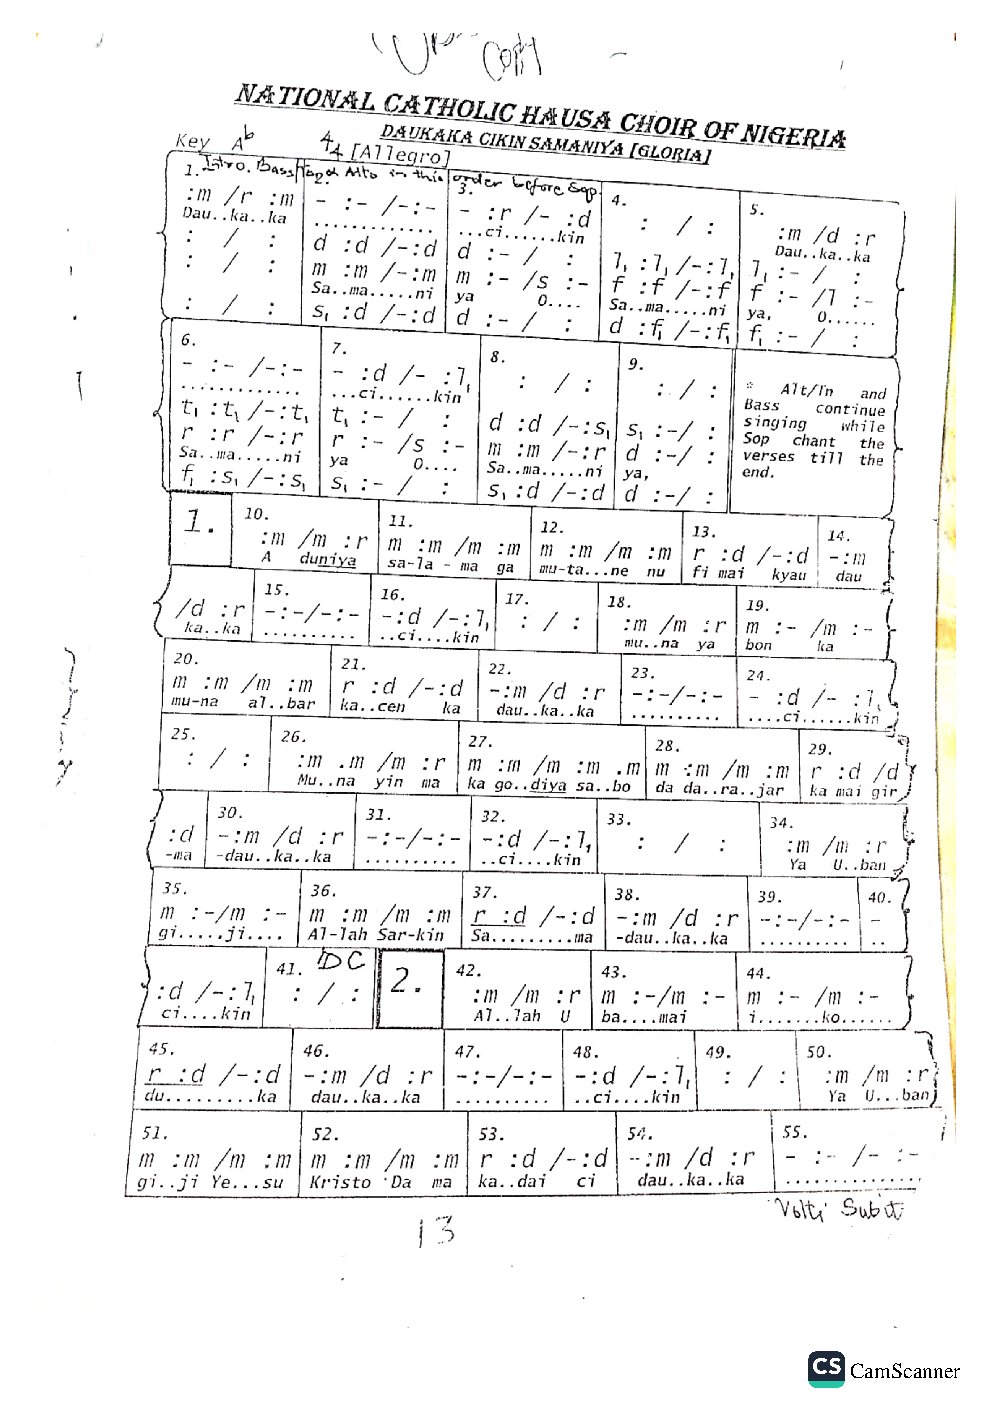 Copy
NATIONAL CATHOLIC HAUSA CHOIR OF NIGERIA
DAUKAKA CIKIN SAMANIYA [GLORIA]
Key Ab 4/4 [Allegro]
Intro. Bass, Alto in this order before Sop.
1. 2. 3. 4. 5.
:m /r :m | - :- /-:- | - :r /- :d | : / : | :m /d :r
Dau..ka..ka | ............ | ...ci......kin | | Dau..ka..ka
: / : | d :d /-:d | d :- / : | l₁ :l₁ /-:l₁ | l₁ :- / :
: / : | m :m /-:m | m :- /s :- | f :f /-:f | f :- /l :-
Sa..ma.....ni | ya O.... | Sa..ma.....ni | ya, O......
: / : | s₁ :d /-:d | d :- / : | d :f₁ /-:f₁ | f₁ :- / :
6. 7. 8. 9.
- :- /-:- | - :d /- :l₁ | : / : | : / :
............ | ...ci......kin
t₁ :t₁ /-:t₁ | t₁ :- / : | d :d /-:s₁ | s₁ :-/ :
r :r /-:r | r :- /s :- | m :m /-:r | d :-/ :
Sa..ma.....ni | ya O.... | Sa..ma.....ni | ya,
f₁ :s₁ /-:s₁ | s₁ :- / : | s₁ :d /-:d | d :-/ :
* Alt/Tn and
Bass continue
singing while
Sop chant the
verses till the
end.
1.
10. 11. 12. 13. 14.
:m /m :r | m :m /m :m | m :m /m :m | r :d /-:d | -:m
A duniya | sa-la - ma ga | mu-ta...ne nu | fi mai kyau | dau
15. 16. 17. 18. 19.
/d :r | -:-/-:- | -:d /-:l₁ | : / : | :m /m :r | m :- /m :-
ka..ka | .......... | ..ci....kin | | mu..na ya | bon ka
20. 21. 22. 23. 24.
m :m /m :m | r :d /-:d | -:m /d :r | -:-/-:- | - :d /- :l₁
mu-na al..bar | ka..cen ka | dau..ka..ka | .......... | ....ci......kin
25. 26. 27. 28. 29.
: / : | :m .m /m :r | m :m /m :m .m | m :m /m :m | r :d /d
Mu..na yin ma | ka go..diya sa..bo | da da..ra..jar | ka mai gir
30. 31. 32. 33. 34.
:d | -:m /d :r | -:-/-:- | -:d /-:l₁ | : / : | :m /m :r
-ma | -dau..ka..ka | .......... | ..ci....kin | | Ya U..ban
35. 36. 37. 38. 39. 40.
m :-/m :- | m :m /m :m | r :d /-:d | -:m /d :r | -:-/-:- | -
gi.....ji.... | Al-lah Sar-kin | Sa.........ma | -dau..ka..ka | .......... | ..
41. DC 2. 42. 43. 44.
:d /-:l₁ | : / : | :m /m :r | m :-/m :- | m :- /m :-
ci....kin | | Al..lah U | ba....mai | i.......ko......
45. 46. 47. 48. 49. 50.
r :d /-:d | -:m /d :r | -:-/-:- | -:d /-:l₁ | : / : | :m /m :r
du.........ka | dau..ka..ka | .......... | ..ci....kin | | Ya U...ban
51. 52. 53. 54. 55.
m :m /m :m | m :m /m :m | r :d /-:d | -:m /d :r | - :- /- :-
gi..ji Ye...su | Kristo Da ma | ka..dai ci | dau..ka..ka | ...............
Volti Subit
13
CS CamScanner